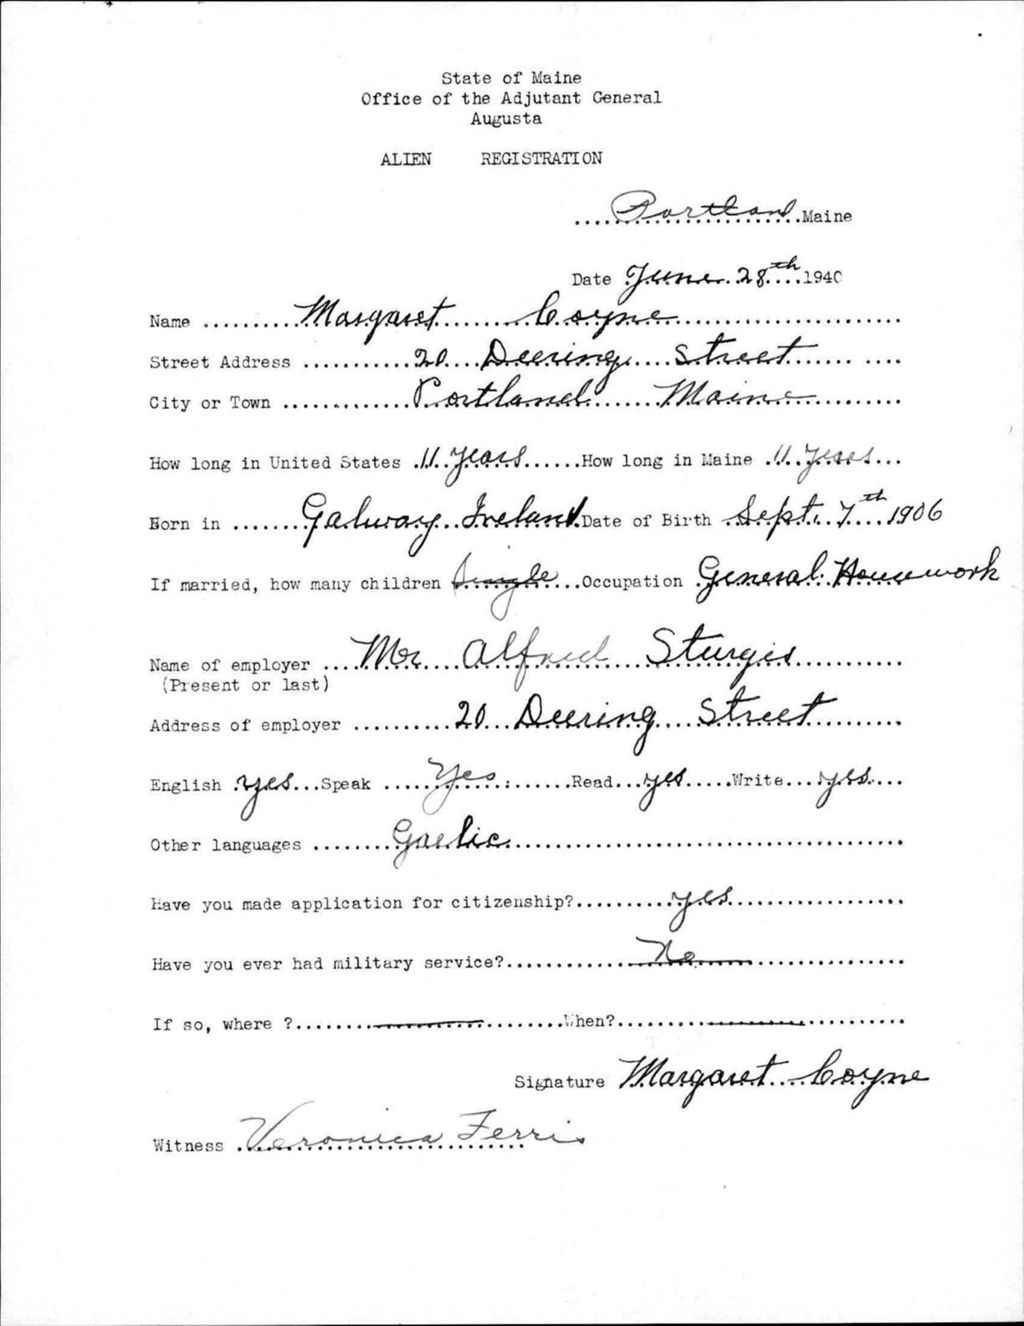 State of Maine
Office of the Adjutant General
Augusta
ALIEN REGISTRATION
....Portland....Maine
Date June 28th....1940
Name ..........Margaret..........Coyne..........
Street Address ..........20....Deering....Street..........
City or Town ..........Portland......Maine..........
How long in United States .11.years......How long in Maine .11.years...
Born in .......Galway..Ireland.Date of Birth .Sept. 7th...1906
If married, how many children Single...Occupation General Housework
Name of employer ....Mr....Alfred....Sturgis..........
(Present or last)
Address of employer ..........20...Deering....Street..........
English .yes...Speak .....Yes.......Read...yes.....Write...yes....
Other languages ........Gaelic..........
Have you made application for citizenship?..........yes..........
Have you ever had military service?..........No..........
If so, where ?..........When?..........
Signature Margaret...Coyne
Witness Veronica Ferris